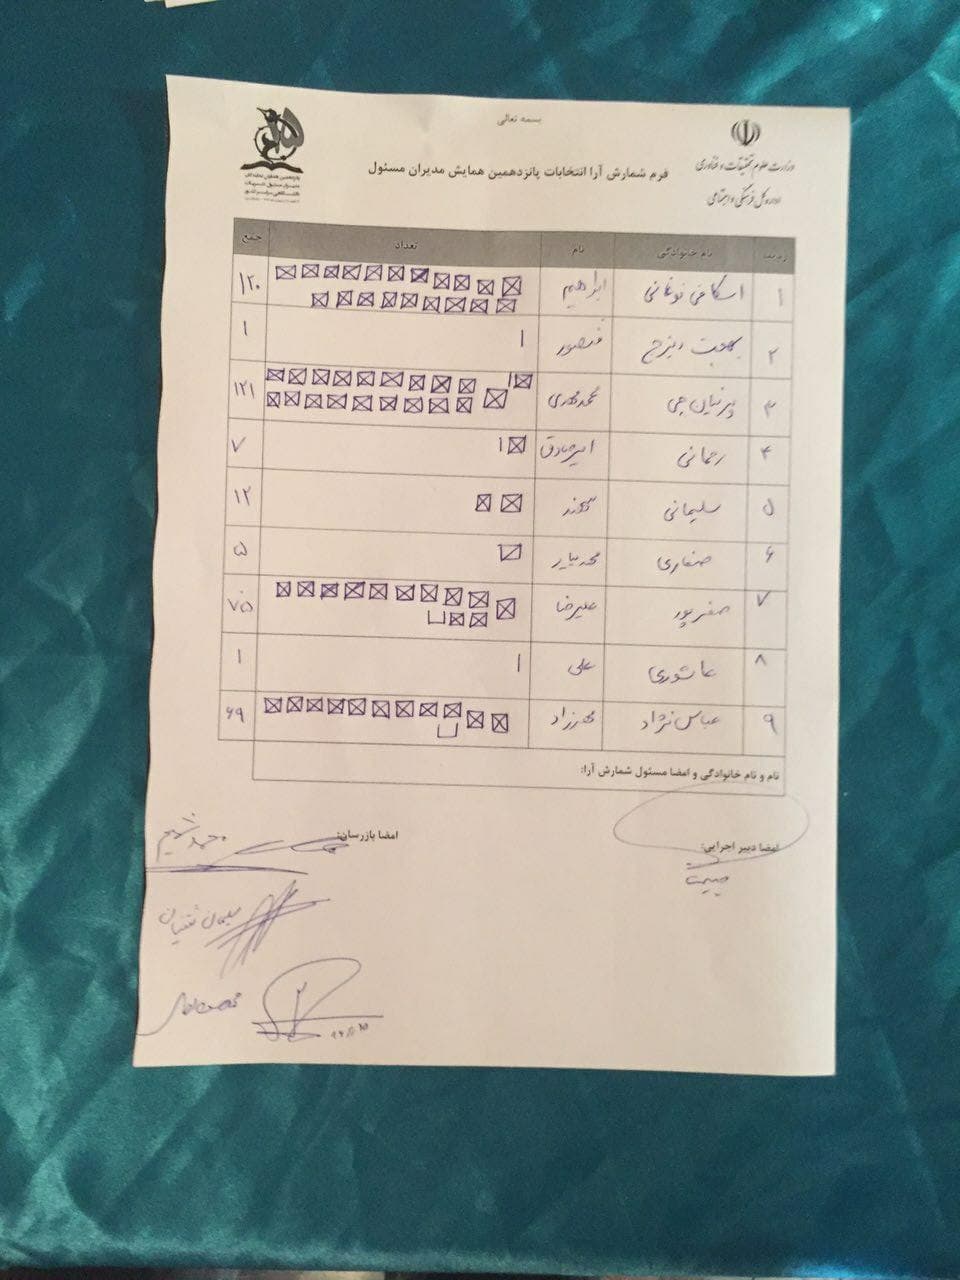 بسمه تعالی
وزارت علوم تحقیقات و فناوری
اداره کل فرهنگی و اجتماعی
فرم شمارش آرا انتخابات پانزدهمین همایش مدیران مسئول
ردیف نام خانوادگی نام تعداد جمع
۱ اسکافی نوغانی ابراهیم ۱۲۰
۲ بهجت منصور ۱ ۱
۳ پرنیان چی محمدمهدی ۱۲۱
۴ رحمانی امیرصادق ۷
۵ سلیمانی سهند ۱۲
۶ صفاری ۵
۷ صفرپور علیرضا ۷۵
۸ عاشوری علی ۱ ۱
۹ عباس نژاد مهرزاد ۶۹
نام و نام خانوادگی و امضا مسئول شمارش آرا:
امضا دبیر اجرایی: امضا بازرسان: